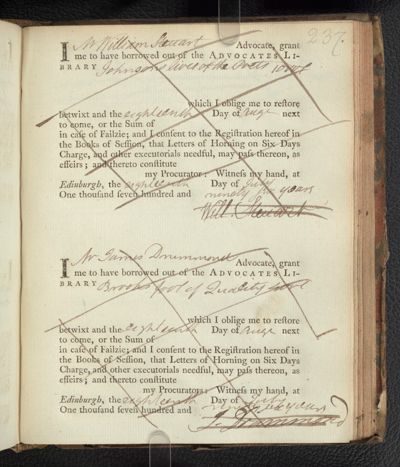 237.
I Mr William Stewart Advocate, grant
me to have borrowed out of the ADVOCATES LI-
BRARY Johnsons lives of the Poets
which I oblige me to reſtore
betwixt and the eighteenth Day of Augt next
to come, or the Sum of
in caſe of Failzie; and I conſent to the Regiſtration hereof in
the Books of Seſſion, that Letters of Horning on Six Days
Charge, and other executorials needful, may paſs thereon, as
effeirs; and thereto conſtitute
my Procurator: Witneſs my hand, at
Edinburgh, the eighteenth Day of July
One thouſand ſeven hundred and ninety six years
Will: Stewart
I Mr James Drummond Advocate, grant
me to have borrowed out of the ADVOCATES LI-
BRARY Brooks fool of Quality
which I oblige me to reſtore
betwixt and the eighteenth Day of Augt next
to come, or the Sum of
in caſe of Failzie; and I conſent to the Regiſtration hereof in
the Books of Seſſion, that Letters of Horning on Six Days
Charge, and other executorials needful, may paſs thereon, as
effeirs; and thereto conſtitute
my Procurator: Witneſs my hand, at
Edinburgh, the eighteenth Day of July
One thouſand ſeven hundred and ninety six years
J. Drummond